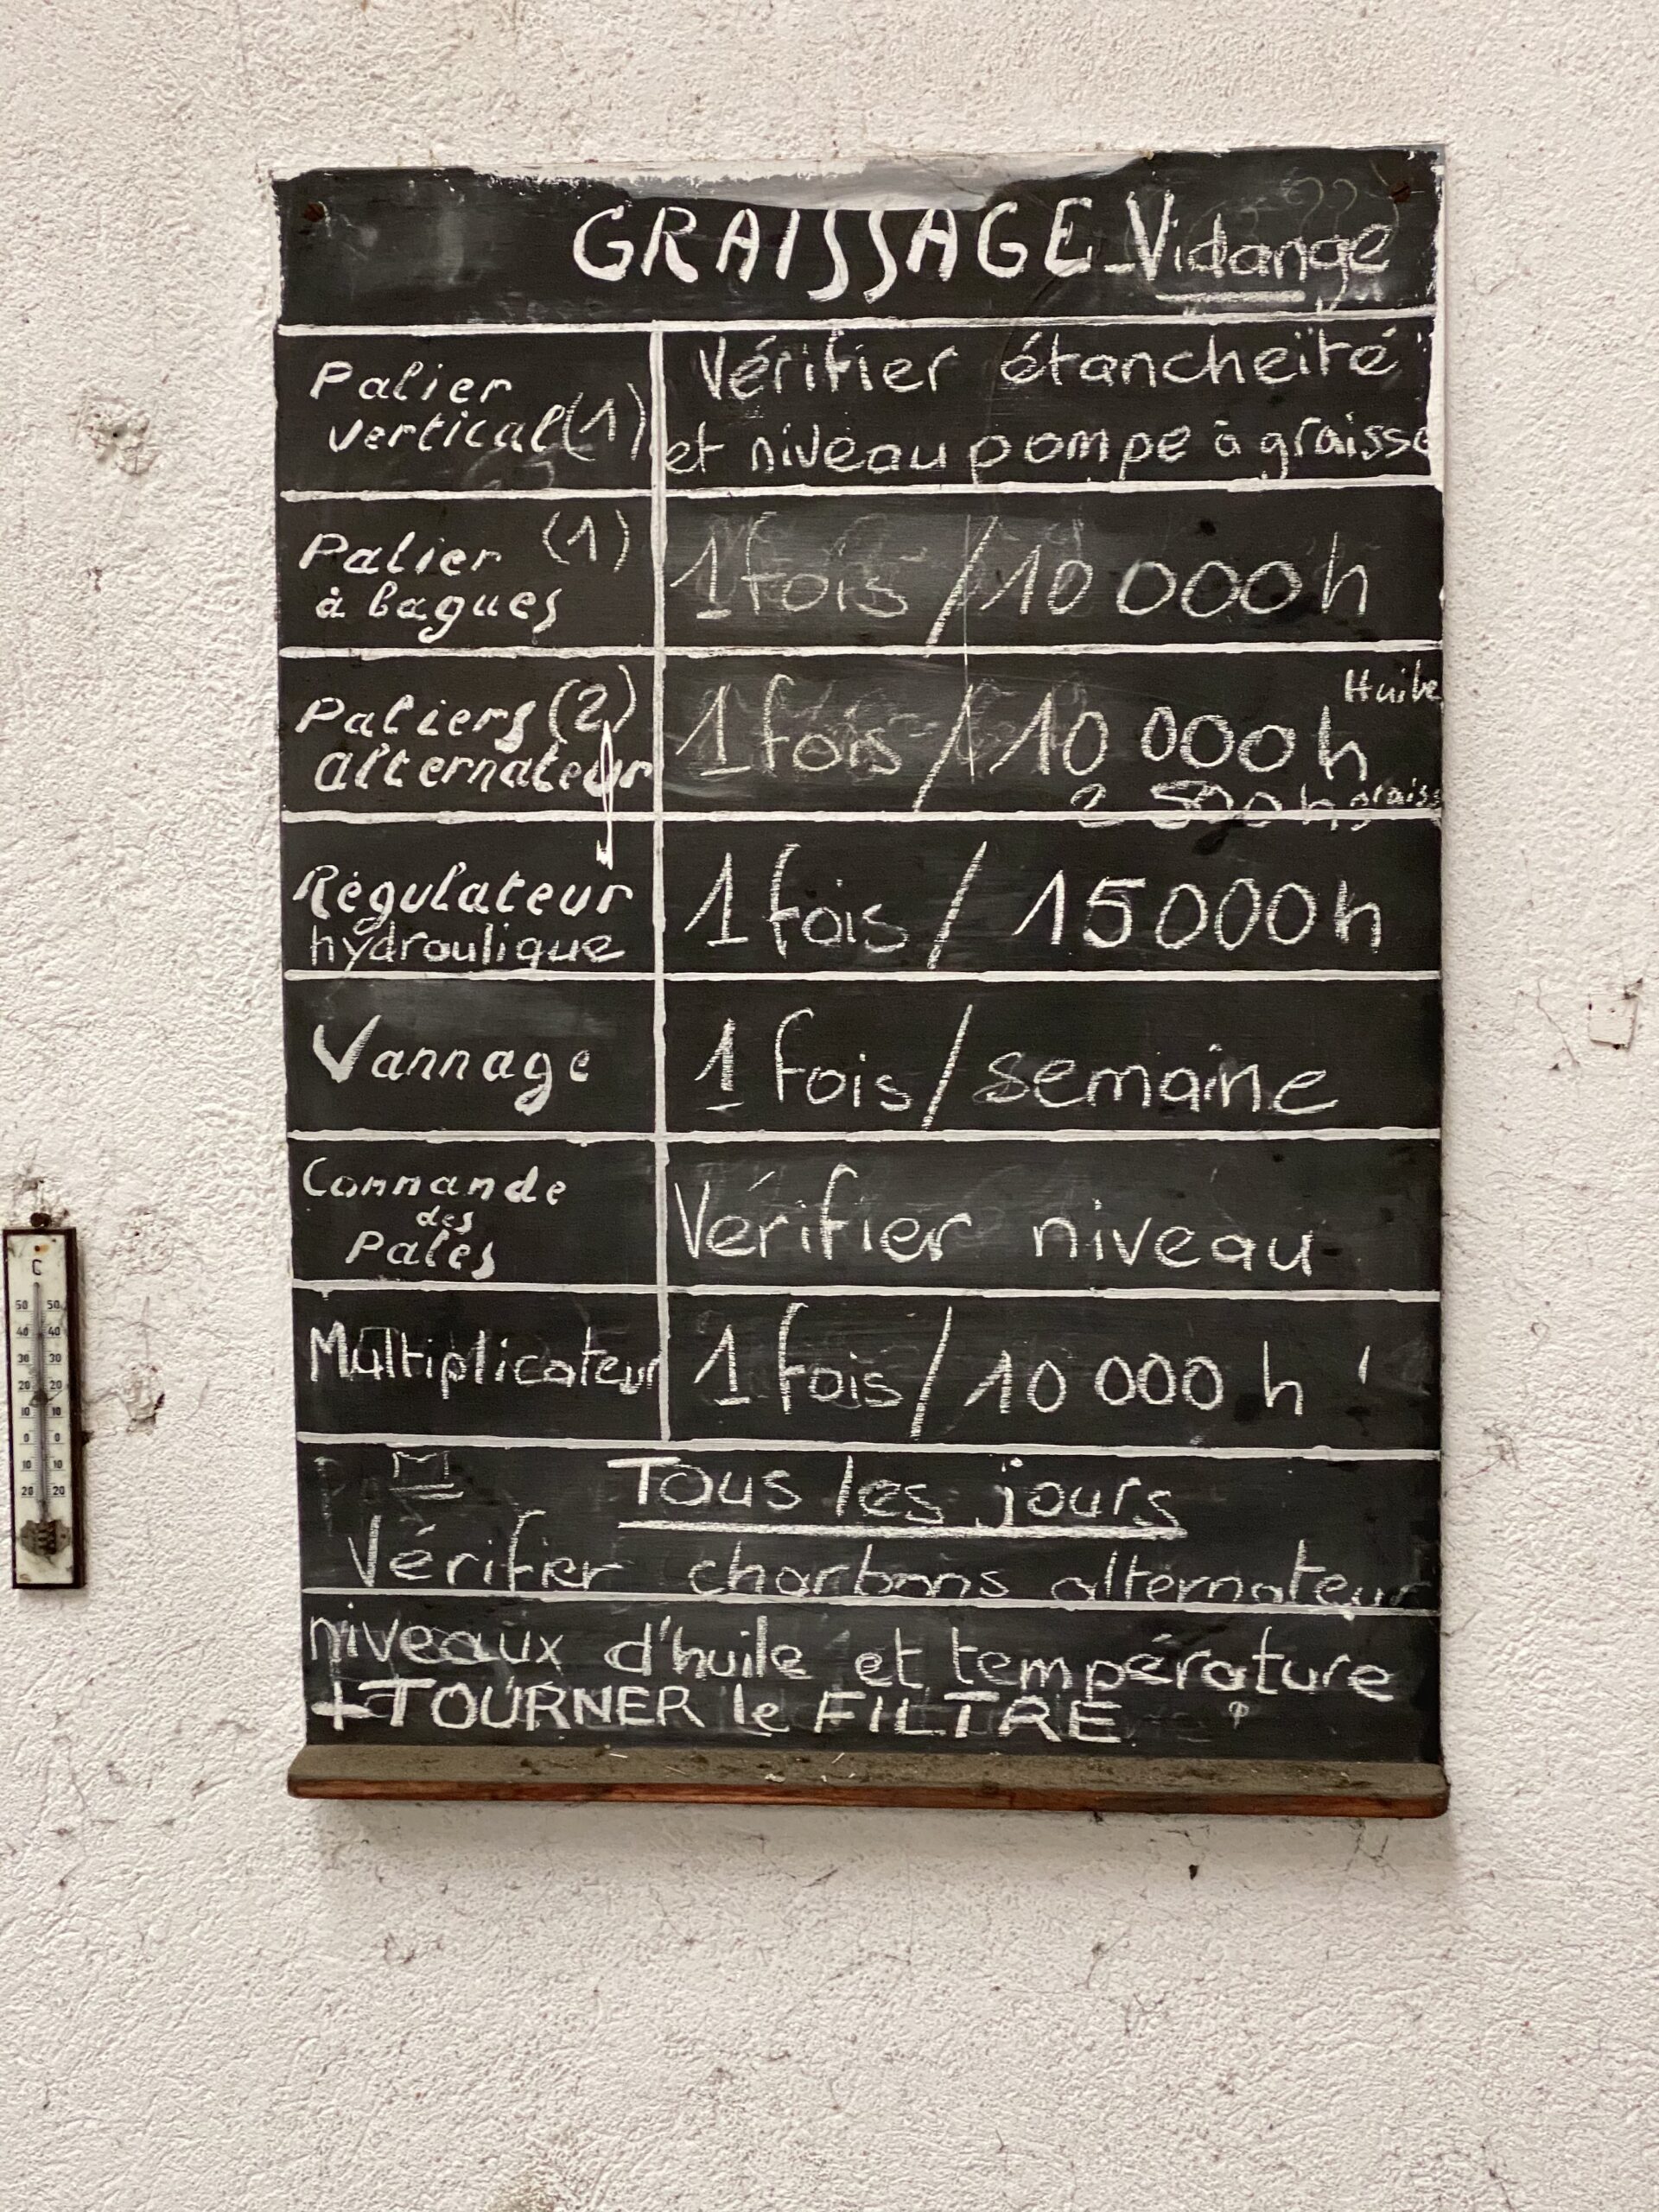 GRAISSAGE-Vidange
Palier
vertical (1)
Vérifier étancheïté
et niveau pompe à graisse
Palier (1)
à bagues
1 fois / 10 000 h
Paliers (2)
alternateur
1 fois / 10 000 h Huile
2 500 h graiss
Régulateur
hydraulique
1 fois / 15000 h
Vannage
1 fois / semaine
Commande
des
Pales
Vérifier niveau
Multiplicateur
1 fois / 10 000 h
Tous les jours
Vérifier charbons alternateur
niveaux d'huile et température
+ TOURNER le FILTRE
C
50 50
40 40
30 30
20 20
10 10
0 0
10 10
20 20